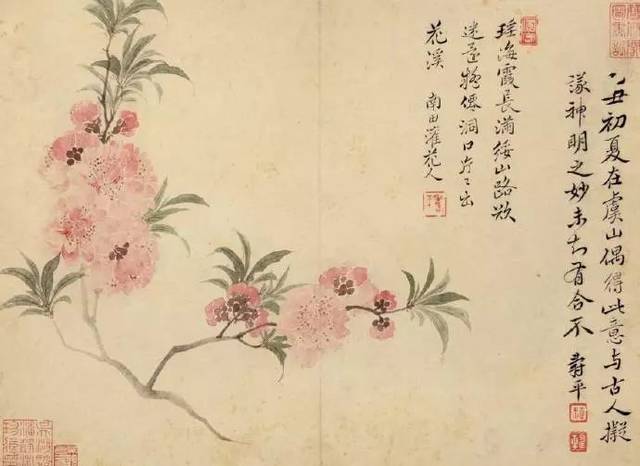 乙丑初夏在虞山偶得此意與古人擬
議神明之妙未知有合不 壽平
瑤海霞長滿綏山路欲
迷還將僊洞口片〻出
花溪 南田灌花人